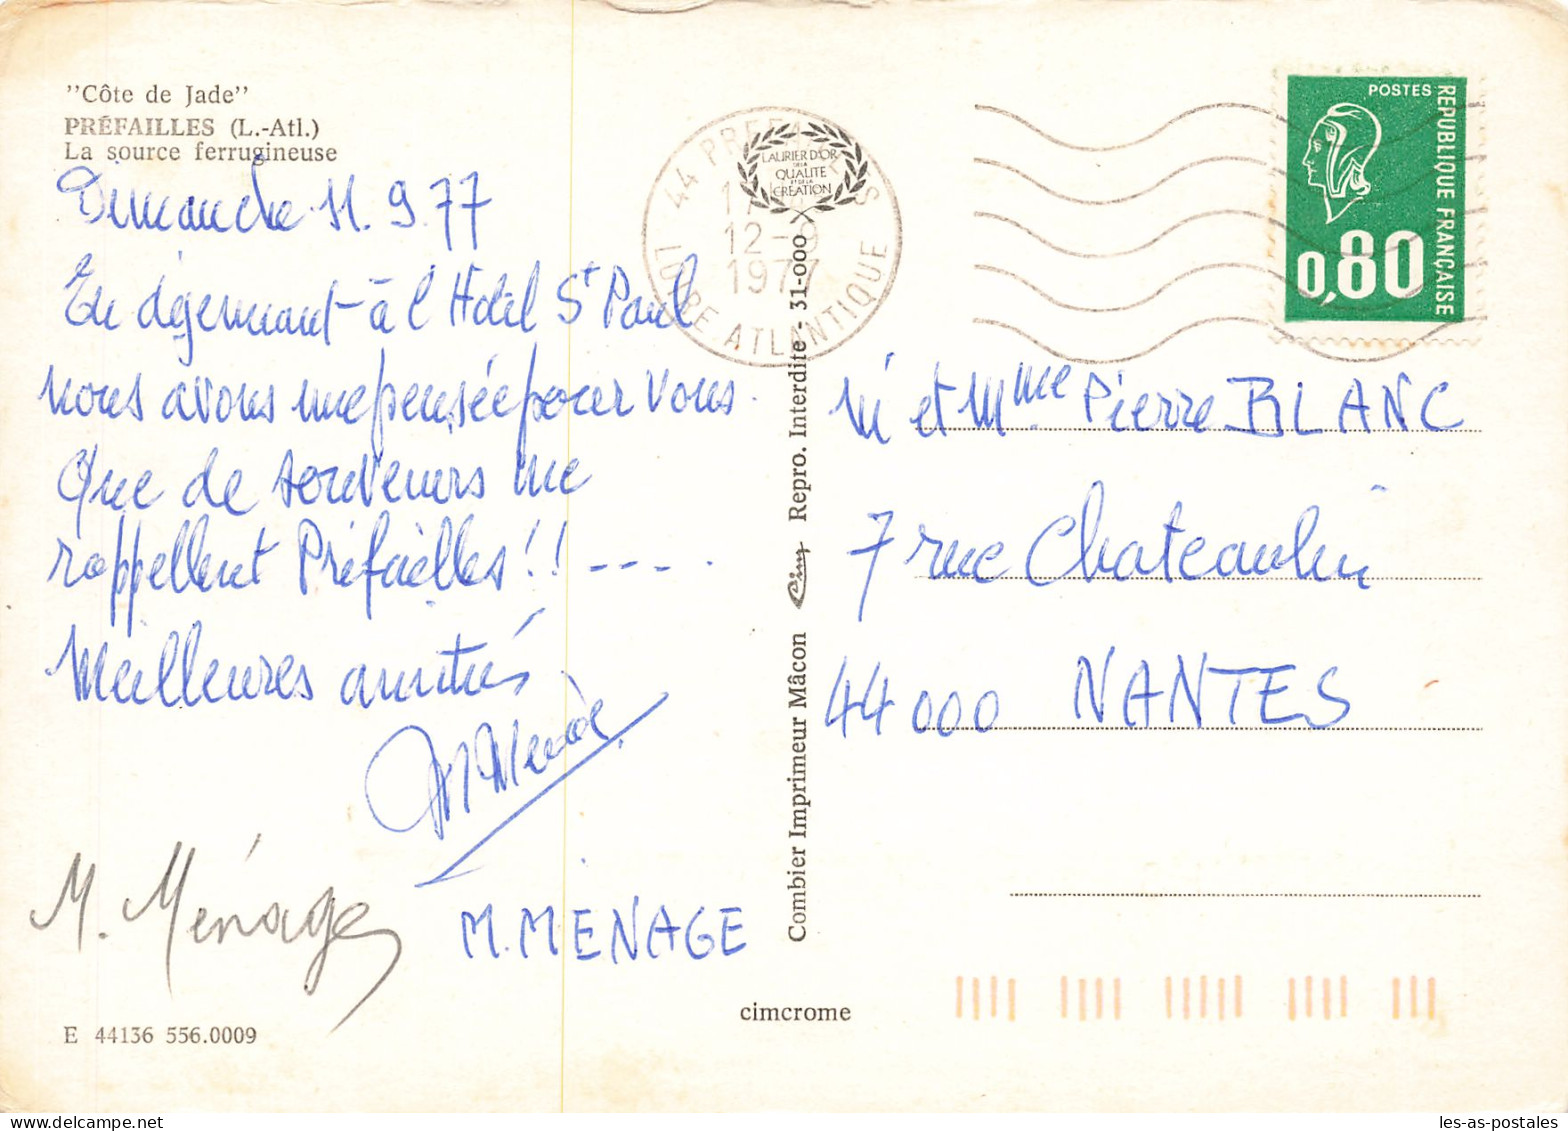 "Côte de Jade"
PRÉFAILLES (L.-Atl.)
La source ferrugineuse
Dimanche 11.9.77
En digermant à l'Hotel St Paul
nous avons une pensée pour vous.
Que de souvenirs me
rappellent Préfailles!! ----.
Meilleures amitiés
M. Ménage
M. MENAGE
E 44136 556.0009
44 PREFAILLES
12-9
1977
LOIRE ATLANTIQUE
LAURIER D'OR
DE LA
QUALITE
ET DE LA
CREATION
Combier Imprimeur Mâcon Cim Repro. Interdite - 31-000
cimcrome
POSTES
REPUBLIQUE FRANÇAISE
0,80
M et Mme Pierre BLANC
7 rue Chateaulin
44000 NANTES
les-as-postales